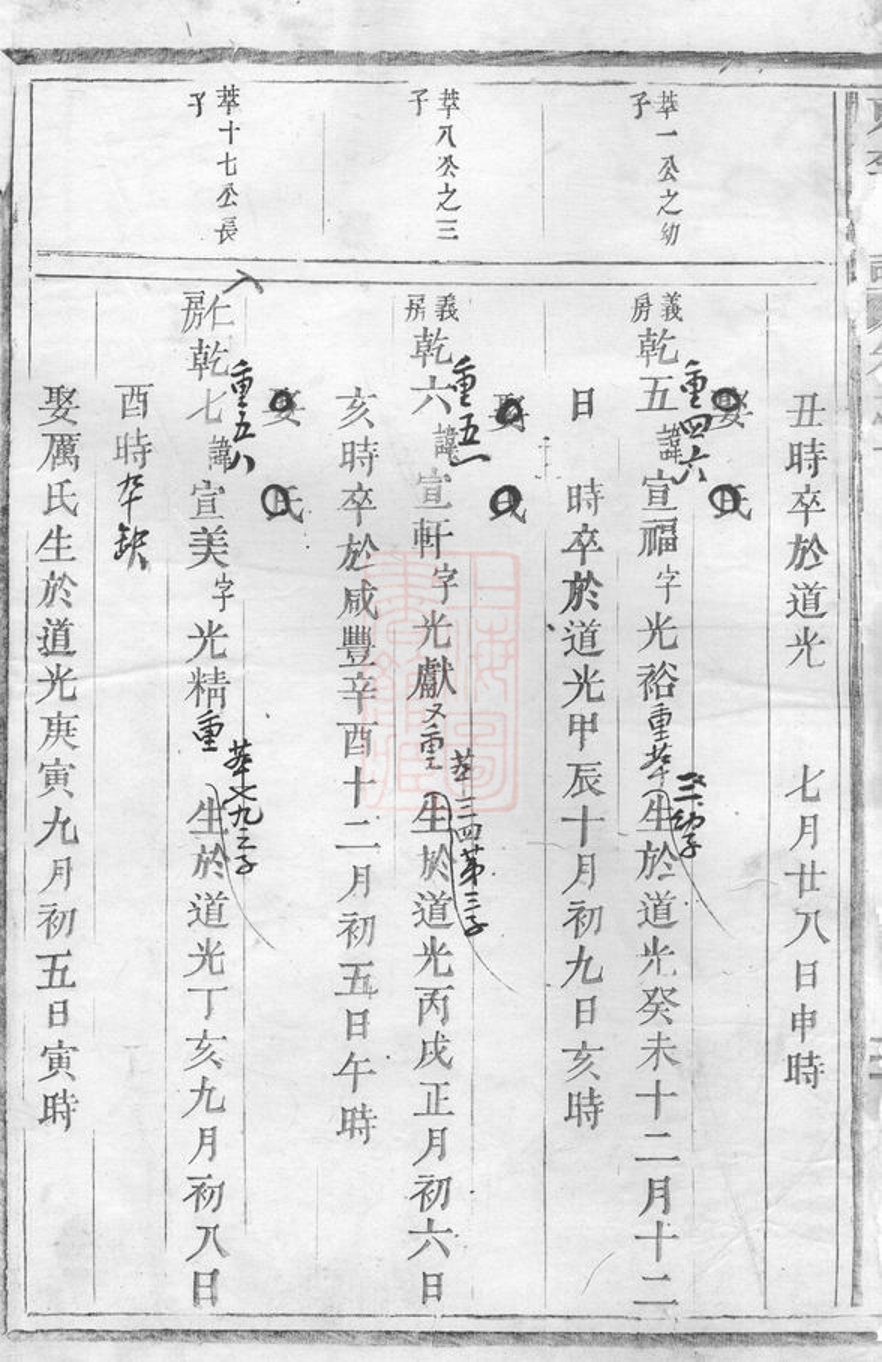 丑時卒於道光　七月廿八日申時
娶　氏
重四六
萃一公之幼子
義房乾五諱宣福字光裕重萃生於道光癸未十二月十二
三幼子
日　時卒於道光甲辰十月初九日亥時
娶　氏
重五一
萃八公之三子
義房乾六諱宣軒字光獻又重生於道光丙戌正月初六日
萃三四第三子
亥時卒於咸豐辛酉十二月初五日午時
娶　氏
重五八
萃十七公長子
仁房乾七諱宣美字光精重生於道光丁亥九月初八日
萃七九之子
酉時卒缺
娶厲氏生於道光庚寅九月初五日寅時
上海圖書館藏